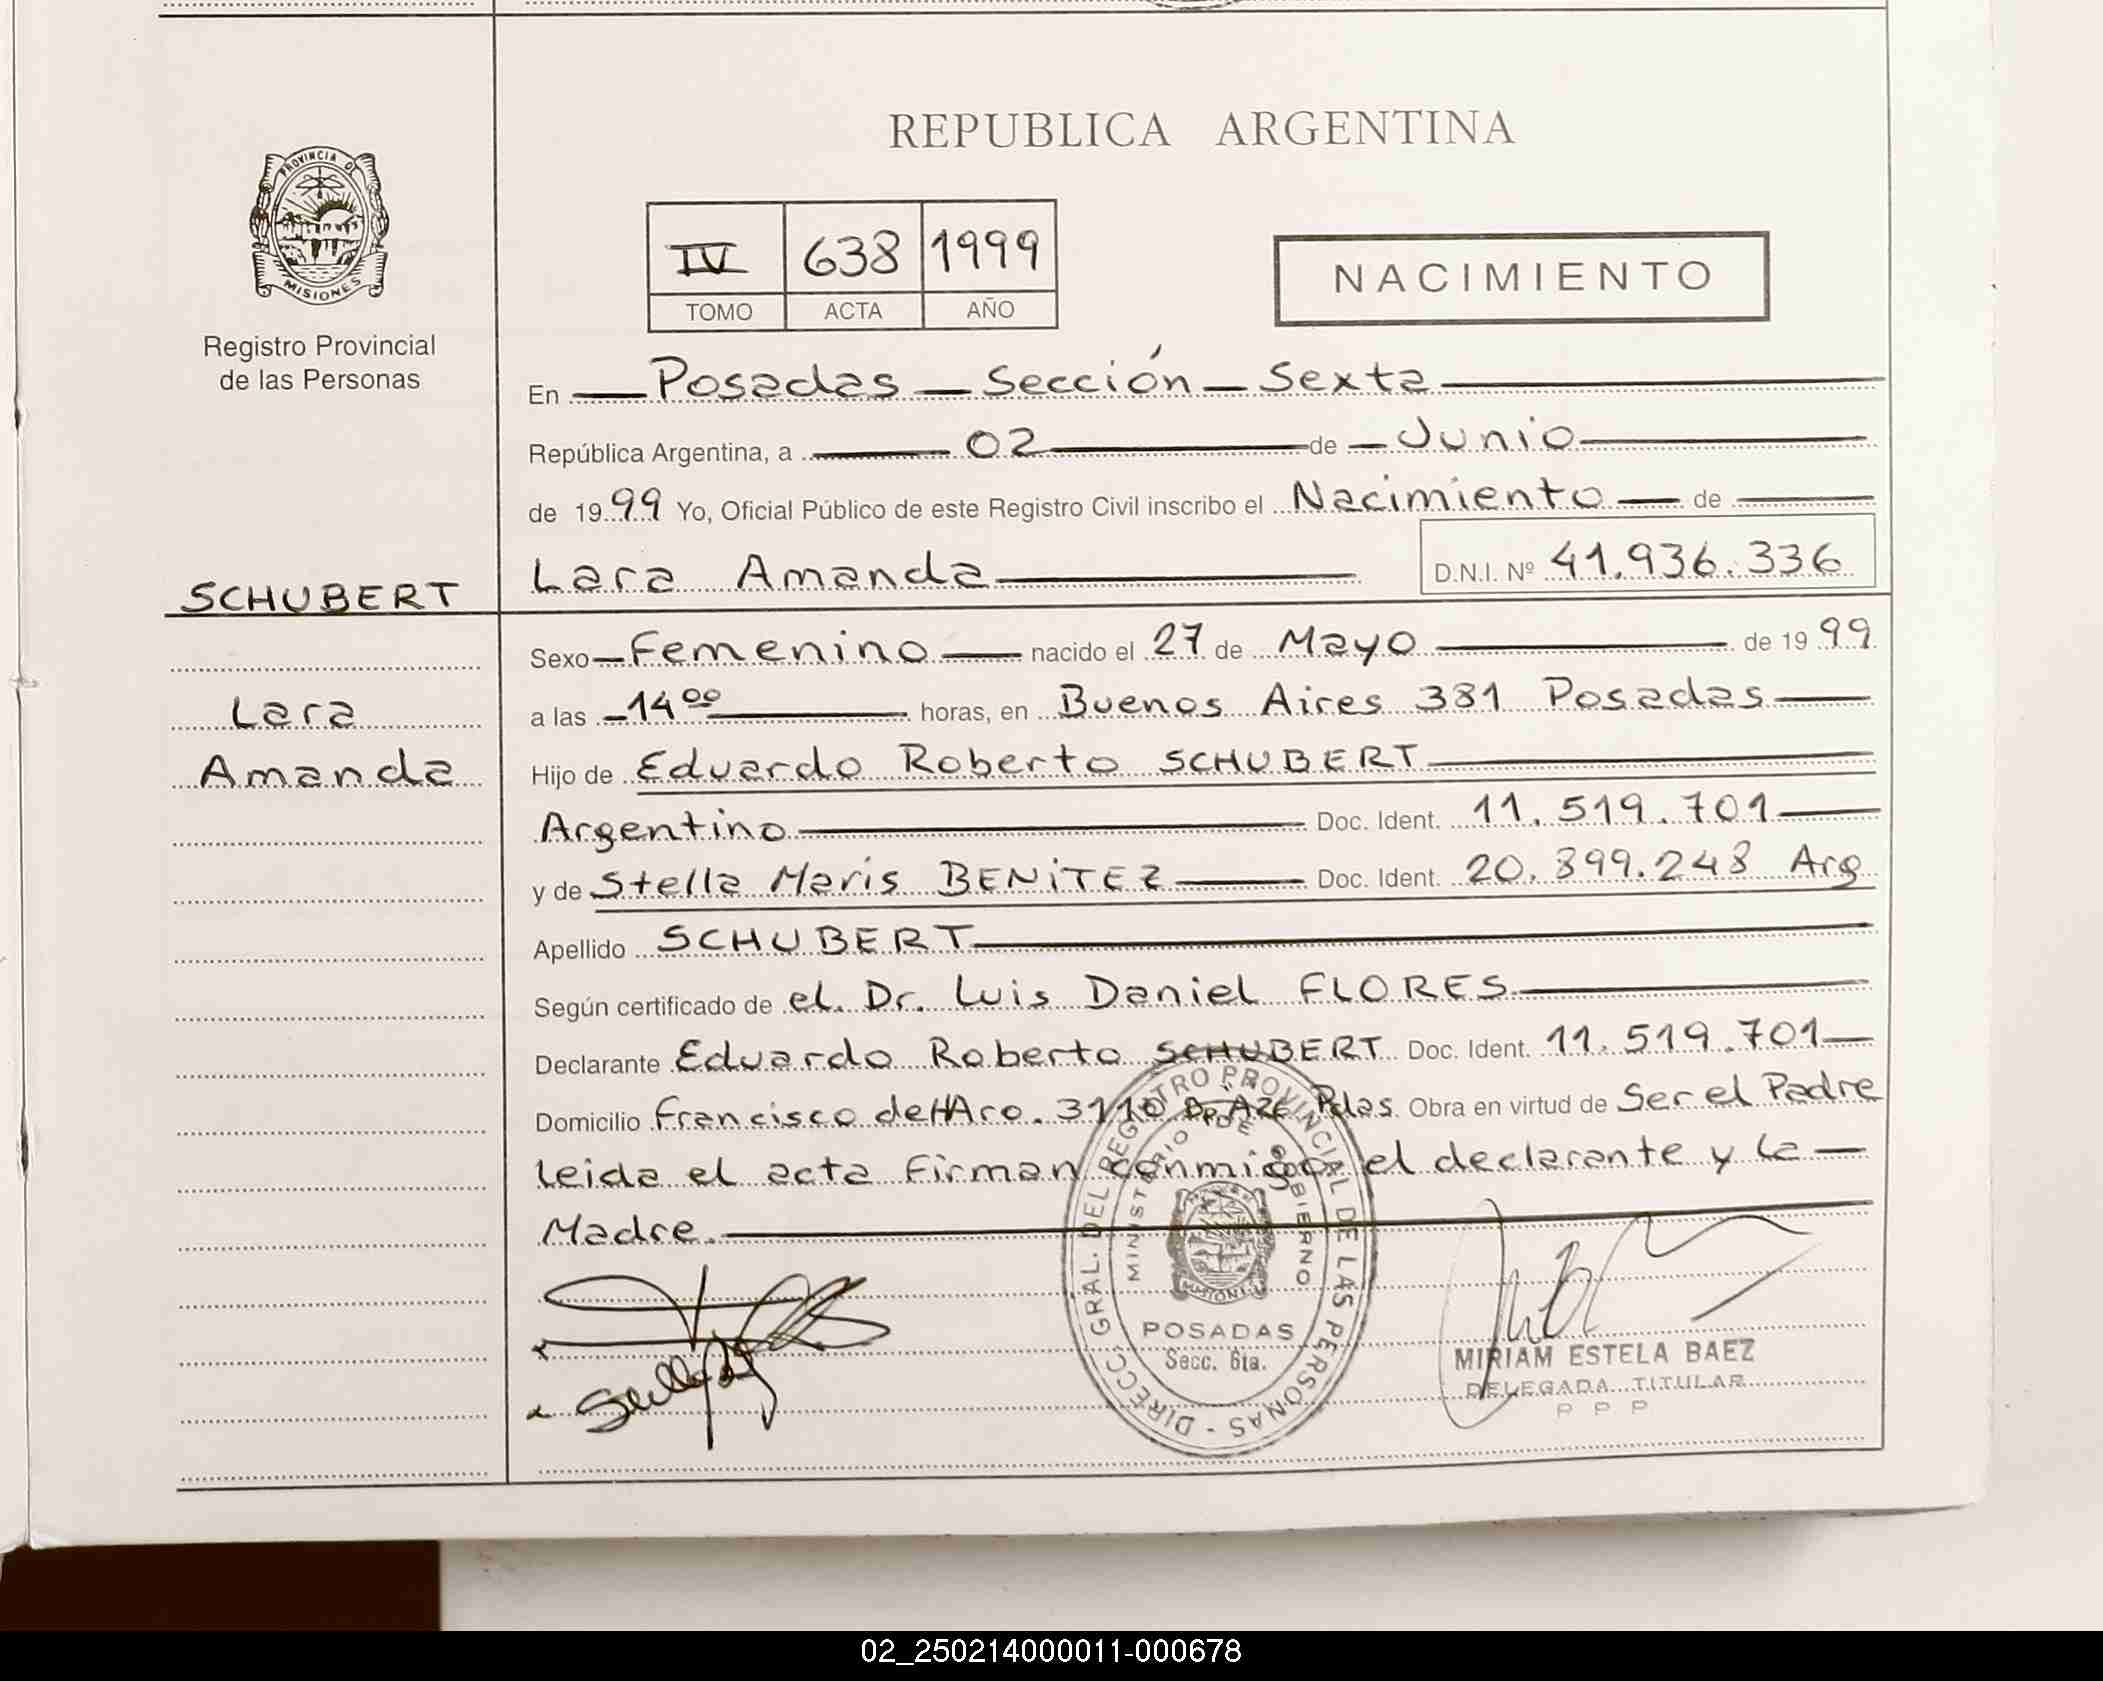 REPUBLICA ARGENTINA
PROVINCIA DE
MISIONES
Registro Provincial
de las Personas
IV 638 1999
TOMO ACTA AÑO
NACIMIENTO
En Posadas Sección Sexta
República Argentina, a 02 de Junio
de 1999 Yo, Oficial Público de este Registro Civil inscribo el Nacimiento de
Lara Amanda D.N.I. Nº 41.936.336
SCHUBERT
Lara
Amanda
Sexo Femenino nacido el 27 de Mayo de 1999
a las 14⁰⁰ horas, en Buenos Aires 381 Posadas
Hijo de Eduardo Roberto SCHUBERT
Argentino Doc. Ident. 11.519.701
y de Stella Maris BENiTEZ Doc. Ident. 20.899.248 Arg
Apellido SCHUBERT
Según certificado de el Dr. Luis Daniel FLORES
Declarante Eduardo Roberto SCHUBERT Doc. Ident. 11.519.701
Domicilio Francisco de Haro. 3110 Pdas. Obra en virtud de Ser el Padre
leida el acta firman conmigo el declarante y la
Madre.
DIRECC. GRAL. DEL REGISTRO PROVINCIAL DE LAS PERSONAS -
MINISTERIO DE GOBIERNO
MISIONES
POSADAS
Secc. 6ta.
MIRIAM ESTELA BAEZ
DELEGADA TITULAR
02_250214000011-000678